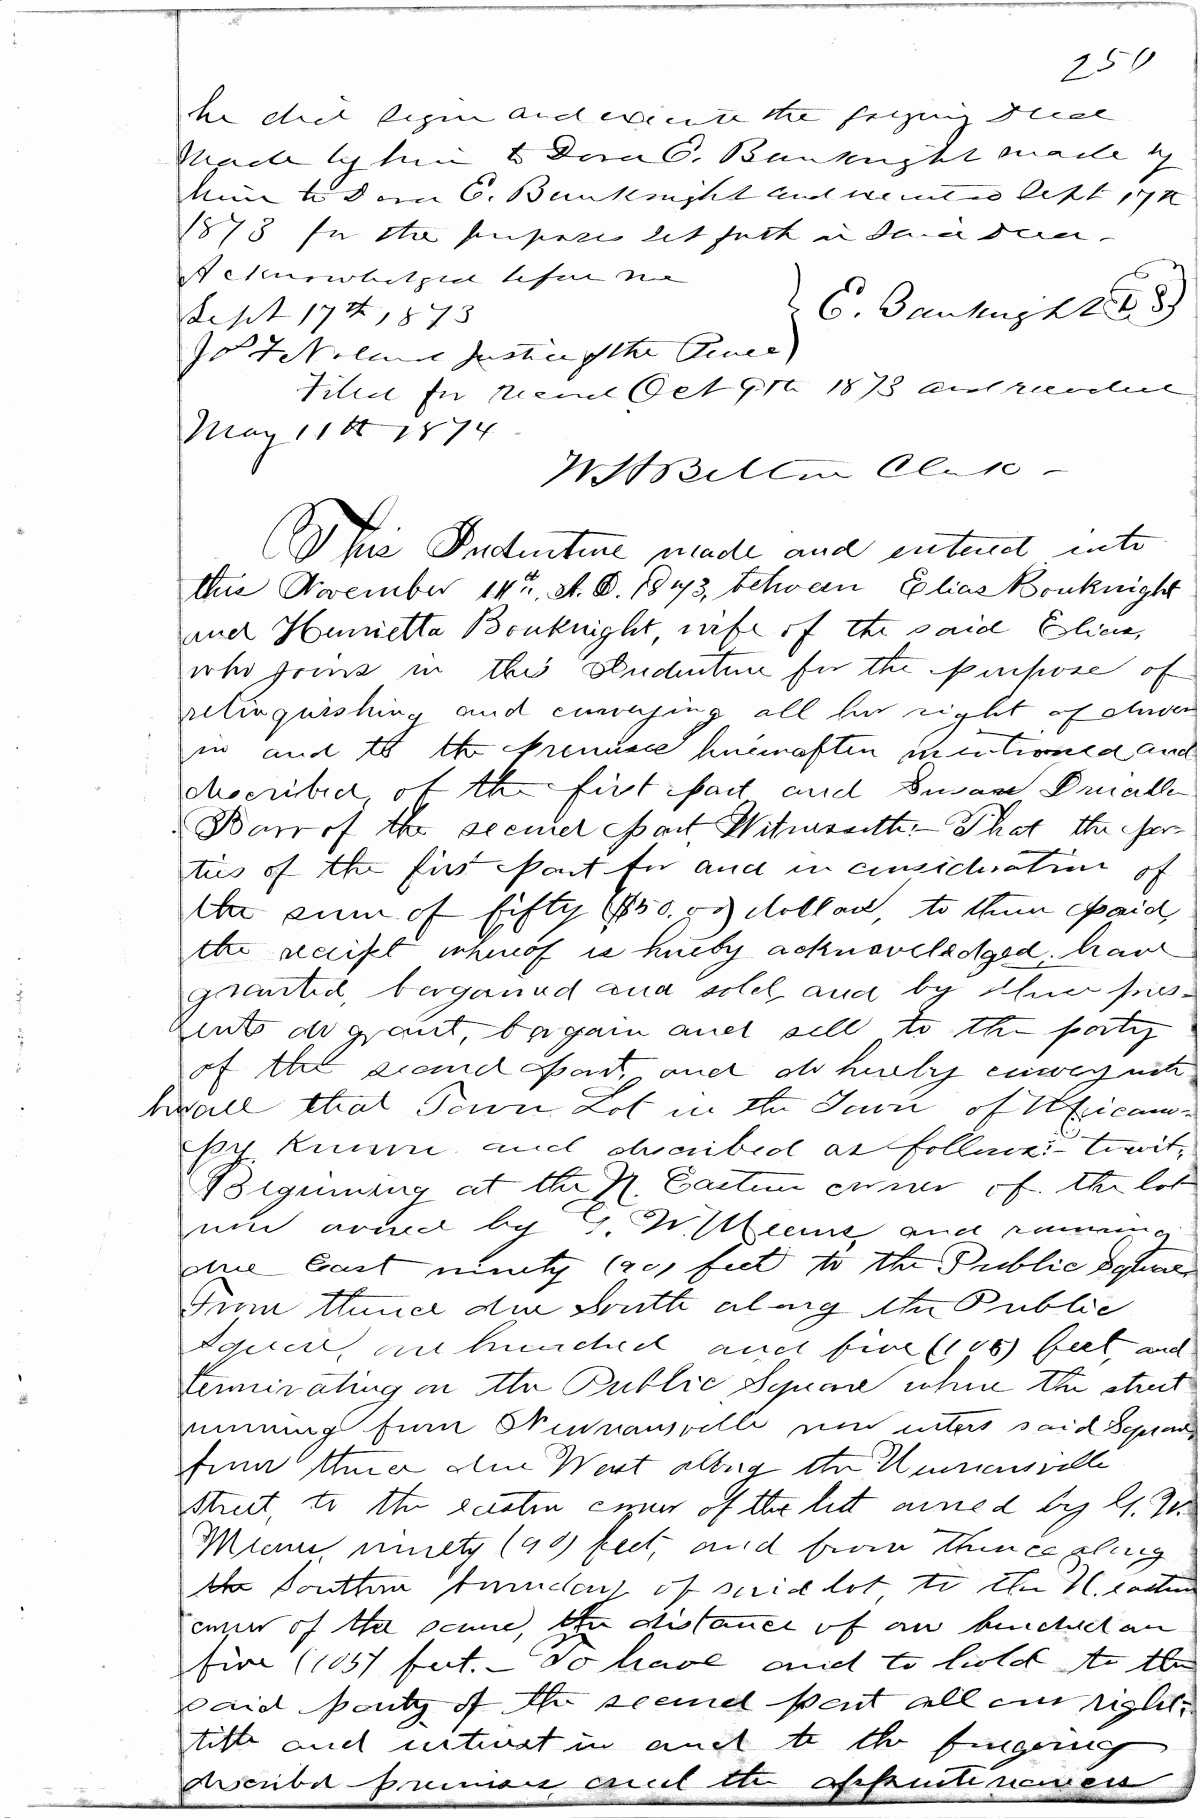 250
he did sign and execute the forgoing Deed
Made by him to Dora E. Bauknight made by
him to Dora E. Bauknight and executed Sept 17th
1873 for the purposes set forth in said Deed -
Acknowledged before me
Sept 17th 1873 } E. Bauknight L S
Jos F Noland Justice of the Peace
Filed for record Oct 9th 1873 and recorded
May 11th 1874
W H Belton Clerk -
This Indenture made and entered into
this November 14th, A. D. 1873, between Elias Bouknight
and Henrietta Bouknight, wife of the said Elias,
who joins in this Indenture for the purpose of
relinquishing and conveying all her right of dower
in and to the premises hereinafter mentioned and
described, of the first part and Susan
Barr of the second part, Witnesseth:- That the par-
ties of the first part for and in consideration of
the sum of fifty ($50.00) dollars, to them paid,
the receipt whereof is hereby acknowledged, have
granted, bargained and sold, and by these pres-
ents do grant, bargain and sell to the party
of the second part, and do hereby convey unto
her all that Town Lot in the Town of Micano-
py known and described as follows:- towit,
Beginning at the N. Eastern corner of the lot
now owned by G. W. Means, and running
due East ninety (90) feet to the Public Square
From thence due South along the Public
Square, one hundred and five (105) feet, and
terminating on the Public Square where the street
running from Newnansville now enters said Square,
from thence due West along the Newnansville
street, to the eastern corner of the lot owned by G. W.
Means, ninety (90) feet, and from thence along
the Southern boundary of said lot, to the N. eastern
corner of the same, the distance of one hundred an
five (105) feet. - To have and to hold to the
said party of the second part all our right,
title and interest in and to the foregoing
described premises, and the appurtenances